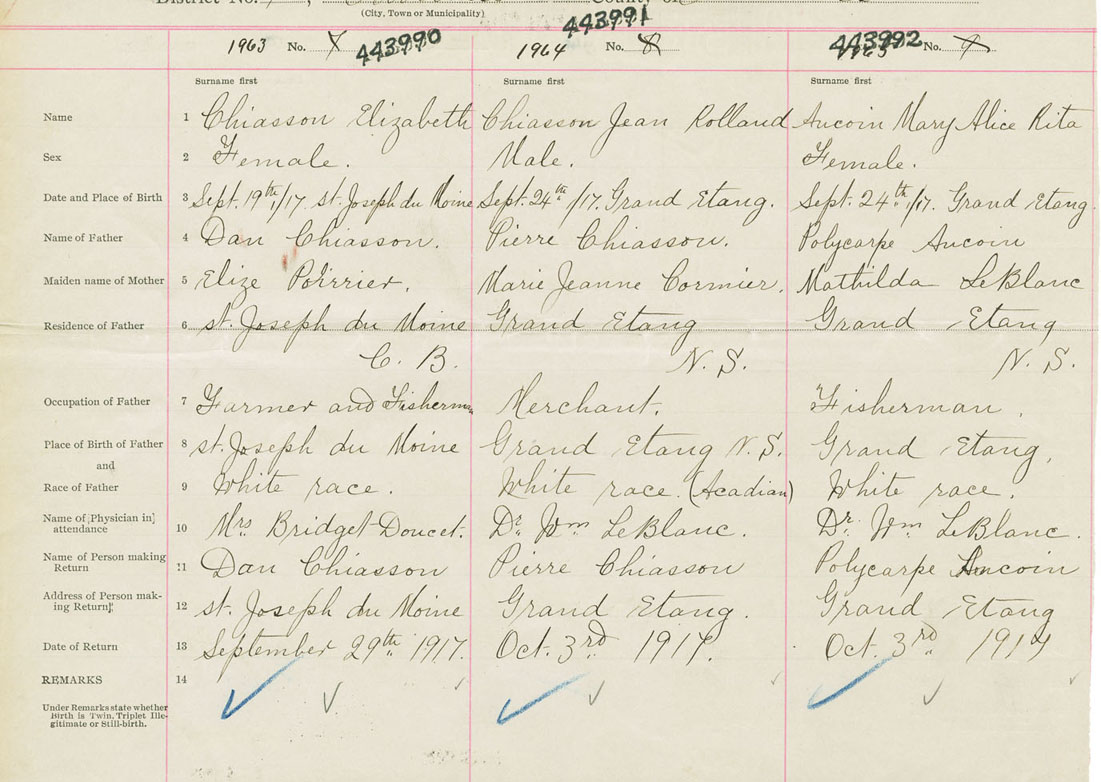 District No.
County of
(City, Town or Municipality)
1963 No. 443990
1964 No. 8 443991
443992 No. 9
Surname first Surname first Surname first
Name 1 Chiasson Elizabeth Chiasson Jean Rolland Aucoin Mary Alice Rita
Sex 2 Female. Male. Female.
Date and Place of Birth 3 Sept. 19th/17. St. Joseph du Moine Sept. 24th/17. Grand Etang. Sept. 24th/17. Grand Etang.
Name of Father 4 Dan Chiasson. Pierre Chiasson. Polycarpe Aucoin
Maiden name of Mother 5 Elize Poirrier. Marie Jeanne Cormier. Mathilda LeBlanc
Residence of Father 6 St. Joseph du Moine Grand Etang Grand Etang
C. B. N. S. N. S.
Occupation of Father 7 Farmer and Fisherman Merchant. Fisherman.
Place of Birth of Father 8 St. Joseph du Moine Grand Etang N. S. Grand Etang.
and
Race of Father 9 White race. White race. (Acadian) White race.
Name of [Physician in]
attendance 10 Mrs. Bridget Doucet. Dr. Wm LeBlanc. Dr. Wm. LeBlanc.
Name of Person making
Return 11 Dan Chiasson Pierre Chiasson Polycarpe Aucoin
Address of Person mak-
ing Return 12 St. Joseph du Moine Grand Etang. Grand Etang
Date of Return 13 September 29th 1917. Oct. 3rd 1917. Oct. 3rd 1917
REMARKS 14
Under Remarks state whether
Birth is Twin, Triplet Ille-
gitimate or Still-birth.